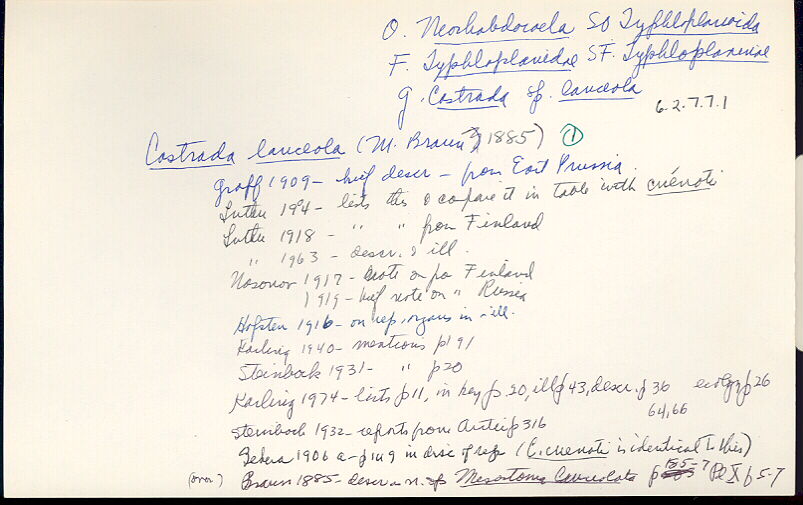 O. Neorhabdocoela SO Typhloplanoida
F. Typhloplanidae SF. Typhloplaninae
g. Castrada sp. lanceola
6.2.7.7.1
Castrada lanceola (M. Braun, 1885) ①
Graff 1909 - brief descr - from East Prussia.
Luther 1904 - lists this & compare it in table with cuénoti
Luther 1918 - " " from Finland
" 1963 - descr. & ill.
Nasonov 1917 - note on fr Finland
1919 - brief note on " Russia
Hofsten 1916 - on rep. organs in - ill.
Karling 1940 - mentions p 191
Steinbock 1931 - " p20
Karling 1974 - lists p11, in key p.20, ill p43, descr. p 36 ecology p26
64,66
Steinbock 1932 - reports from p316
1906 a - p 149 in disc of rep (C. cuenoti is identical to this)
(over) Braun 1885 - descr as n. sp Mesostoma lanceolata p 5-7 Pl X p 5-7